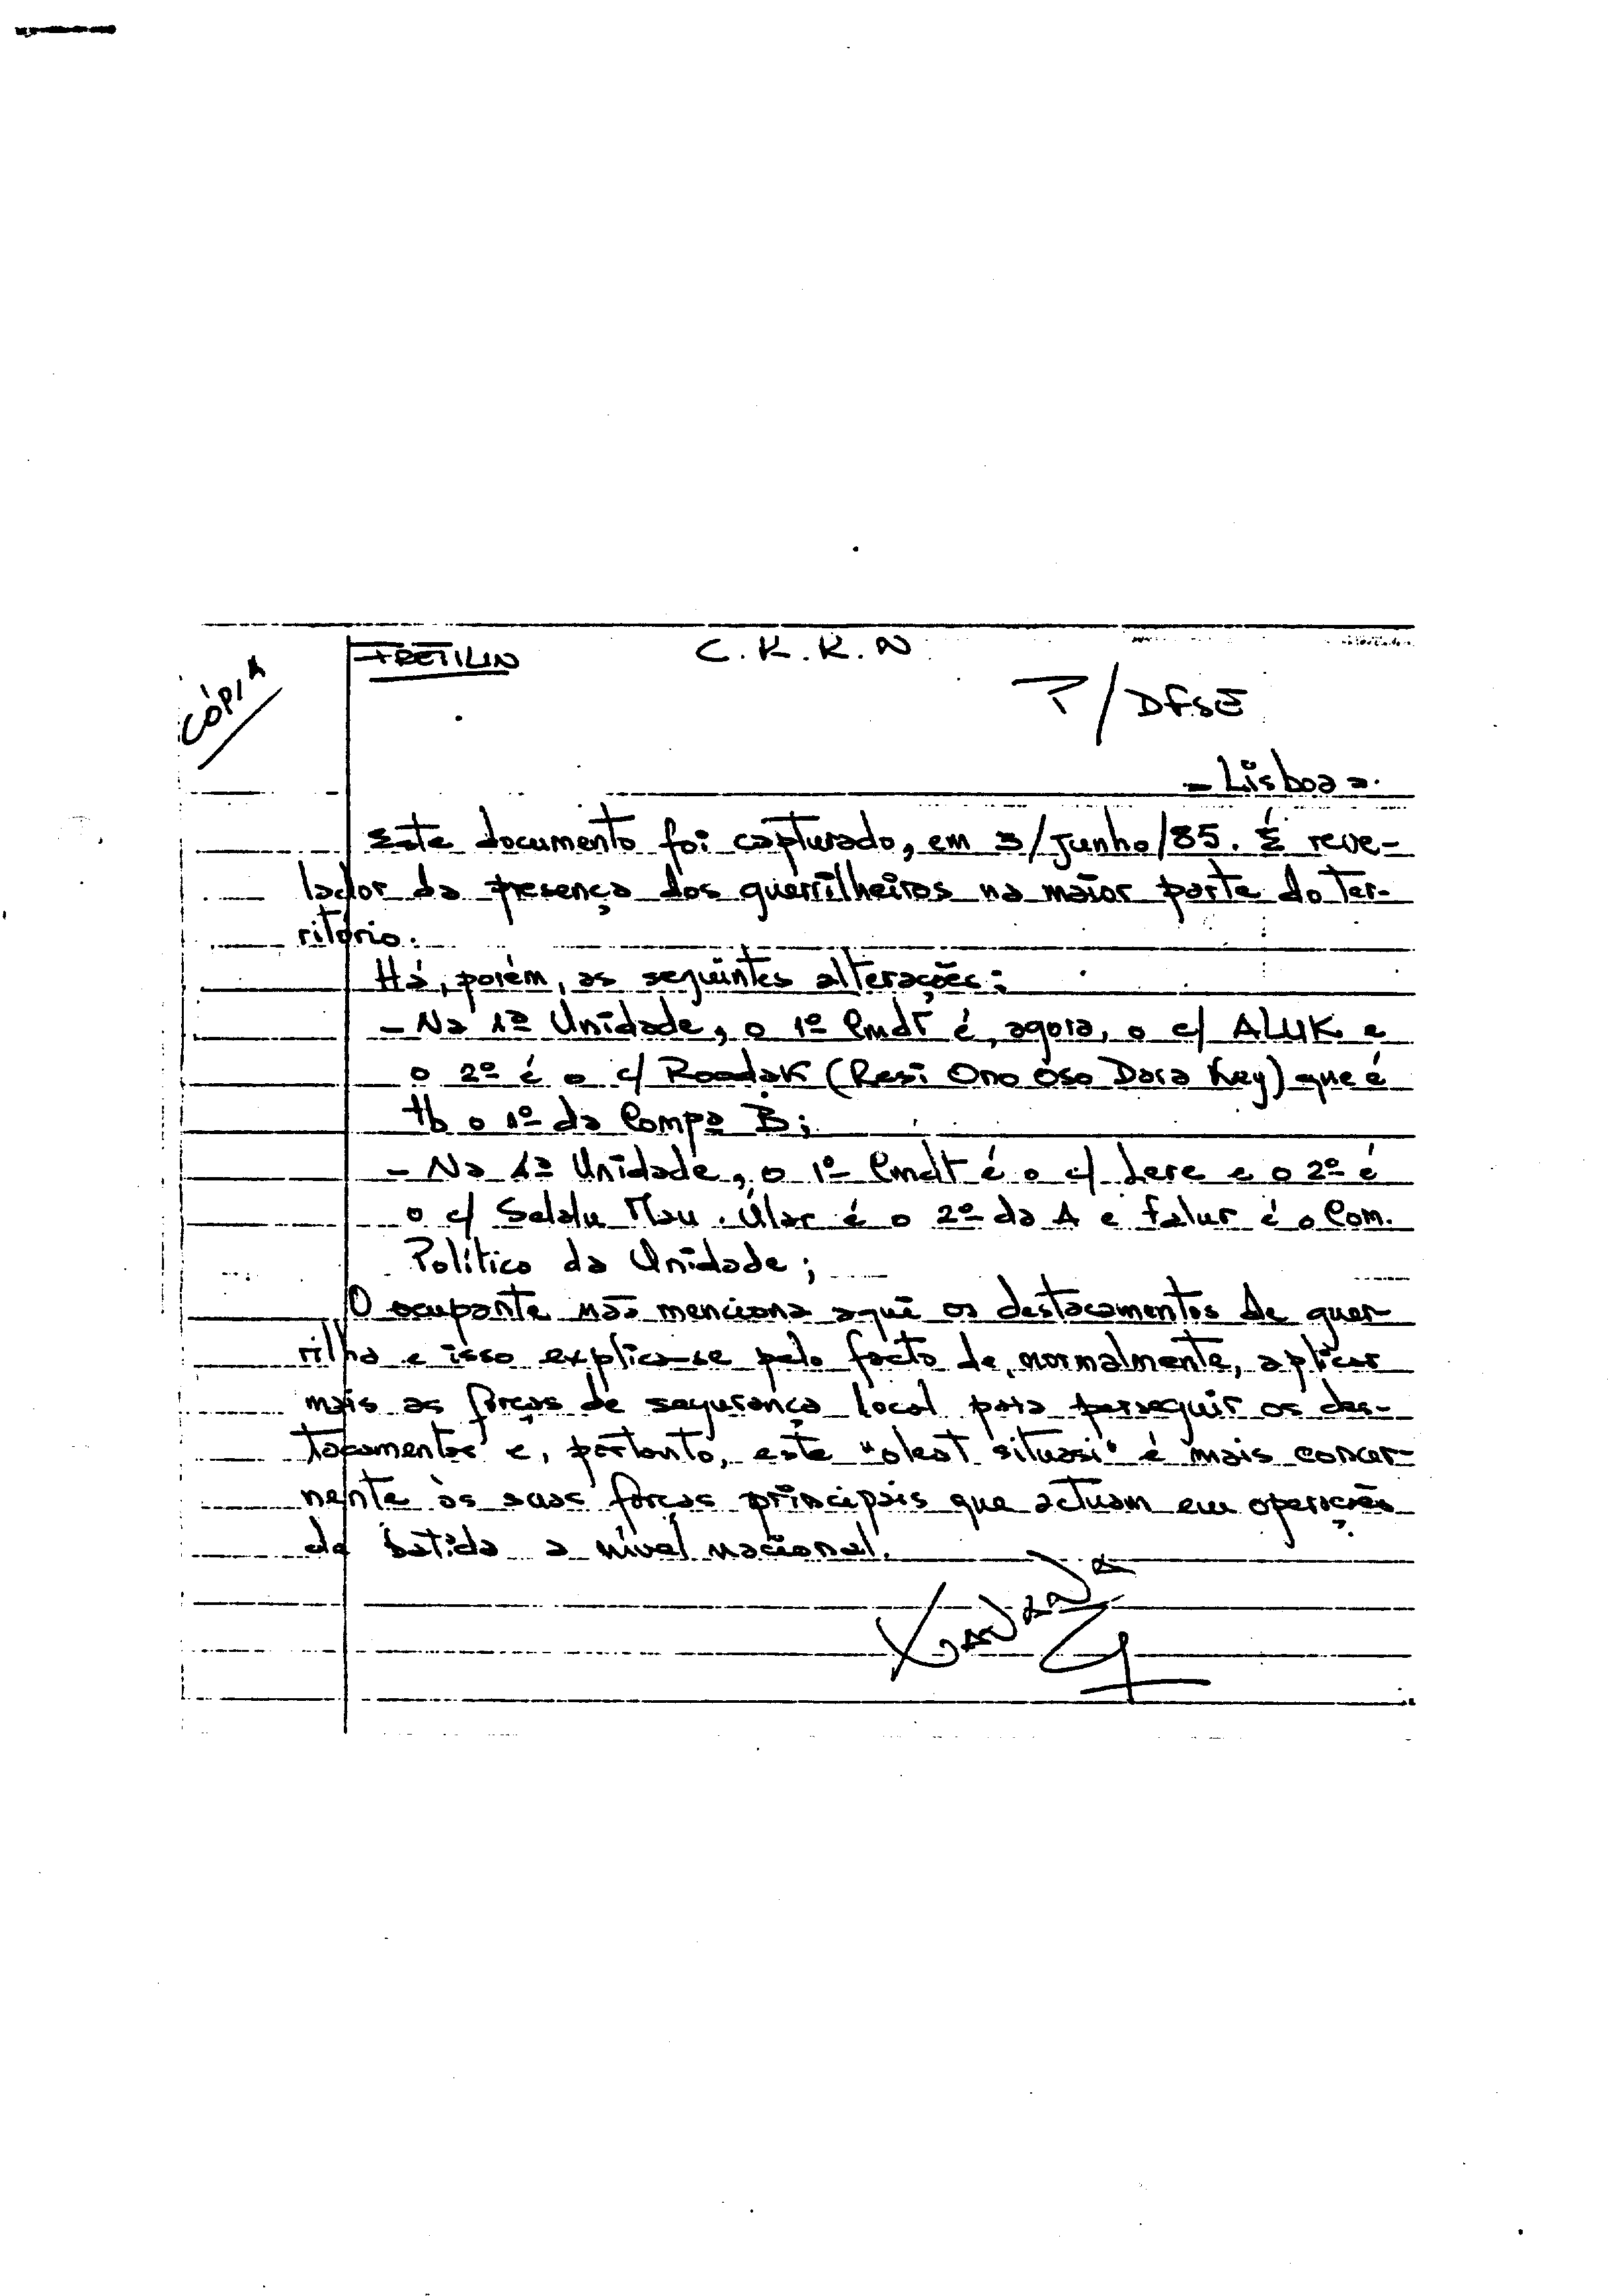 FRETILIN
C.K.K.N
CÓPIA
P/DFSE
- Lisboa -.
Este documento foi capturado, em 3/Junho/85. É reve-
lador da presença dos guerrilheiros na maior parte do Ter-
ritório.
Há, porém, as seguintes alterações:
- Na 1ª Unidade, o 1º Cmdt é, agora, o c/ ALUK e
o 2º é o c/ Roodak (Resi Ono Oso Dara Key) que é
tb o 1º da Compª B;
- Na 4ª Unidade, o 1º Cmdt é o c/ Lere e o 2º é
o c/ Selalu Mau. Ular é o 2º da A e Falur é o Com.
Político da Unidade;
O ocupante não menciona aqui os destacamentos de guer-
rilha e isso explica-se pelo facto de, normalmente, aplicar
mais as forças de segurança local para perseguir os des-
tacamentos e, portanto, este "oleat situasi" é mais concer-
nente às suas forças principais que actuam em operações
de batida a nível nacional.
XANANA